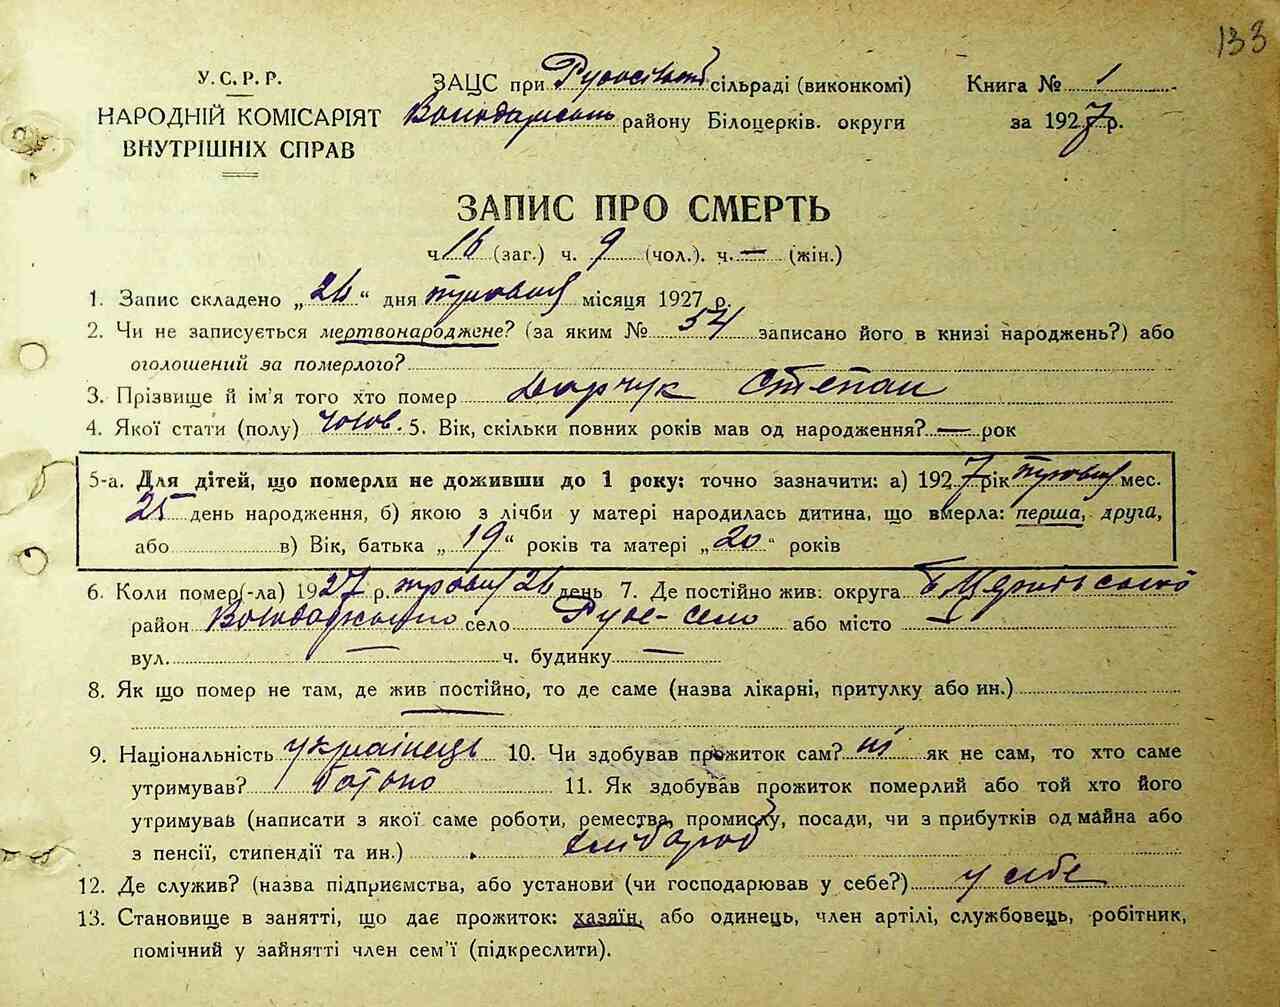 133
У.С.Р.Р.
НАРОДНІЙ КОМІСАРІЯТ
ВНУТРІШНІХ СПРАВ
ЗАЦС при сільраді (виконкомі)
району Білоцерків. округи
Книга № 1
за 1927 р.
ЗАПИС ПРО СМЕРТЬ
ч 16 (заг.) ч. 9 (чол.). ч. — (жін.)
1. Запис складено „26“ дня травня місяця 1927 р.
2. Чи не записується мертвонароджене? (за яким № 54 записано його в книзі народжень?) або
оголошений за померлого?
3. Прізвище й ім'я того хто помер Степан
4. Якої стати (полу) чолов. 5. Вік, скільки повних років мав од народження? — рок
5-а. Для дітей, що померли не доживши до 1 року: точно зазначити: а) 1927 рік травня мес.
25 день народження, б) якою з лічби у матері народилась дитина, що вмерла: перша, друга,
або в) Вік, батька „19“ років та матері „20“ років
6. Коли помер(-ла) 1927 р. травня 26 день 7. Де постійно жив: округа Б Церківської
район село Руде-село або місто —
вул. — ч. будинку —
8. Як що помер не там, де жив постійно, то де саме (назва лікарні, притулку або ин.)
—
9. Національність українець 10. Чи здобував прожиток сам? ні як не сам, то хто саме
утримував? батько 11. Як здобував прожиток померлий або той хто його
утримував (написати з якої саме роботи, ремества, промислу, посади, чи з прибутків од майна або
з пенсії, стипендії та ин.) хлібороб
12. Де служив? (назва підприємства, або установи (чи господарював у себе?) у себе
13. Становище в занятті, що дає прожиток: хазяїн, або одинець, член артілі, службовець, робітник,
помічний у зайнятті член сем'ї (підкреслити).